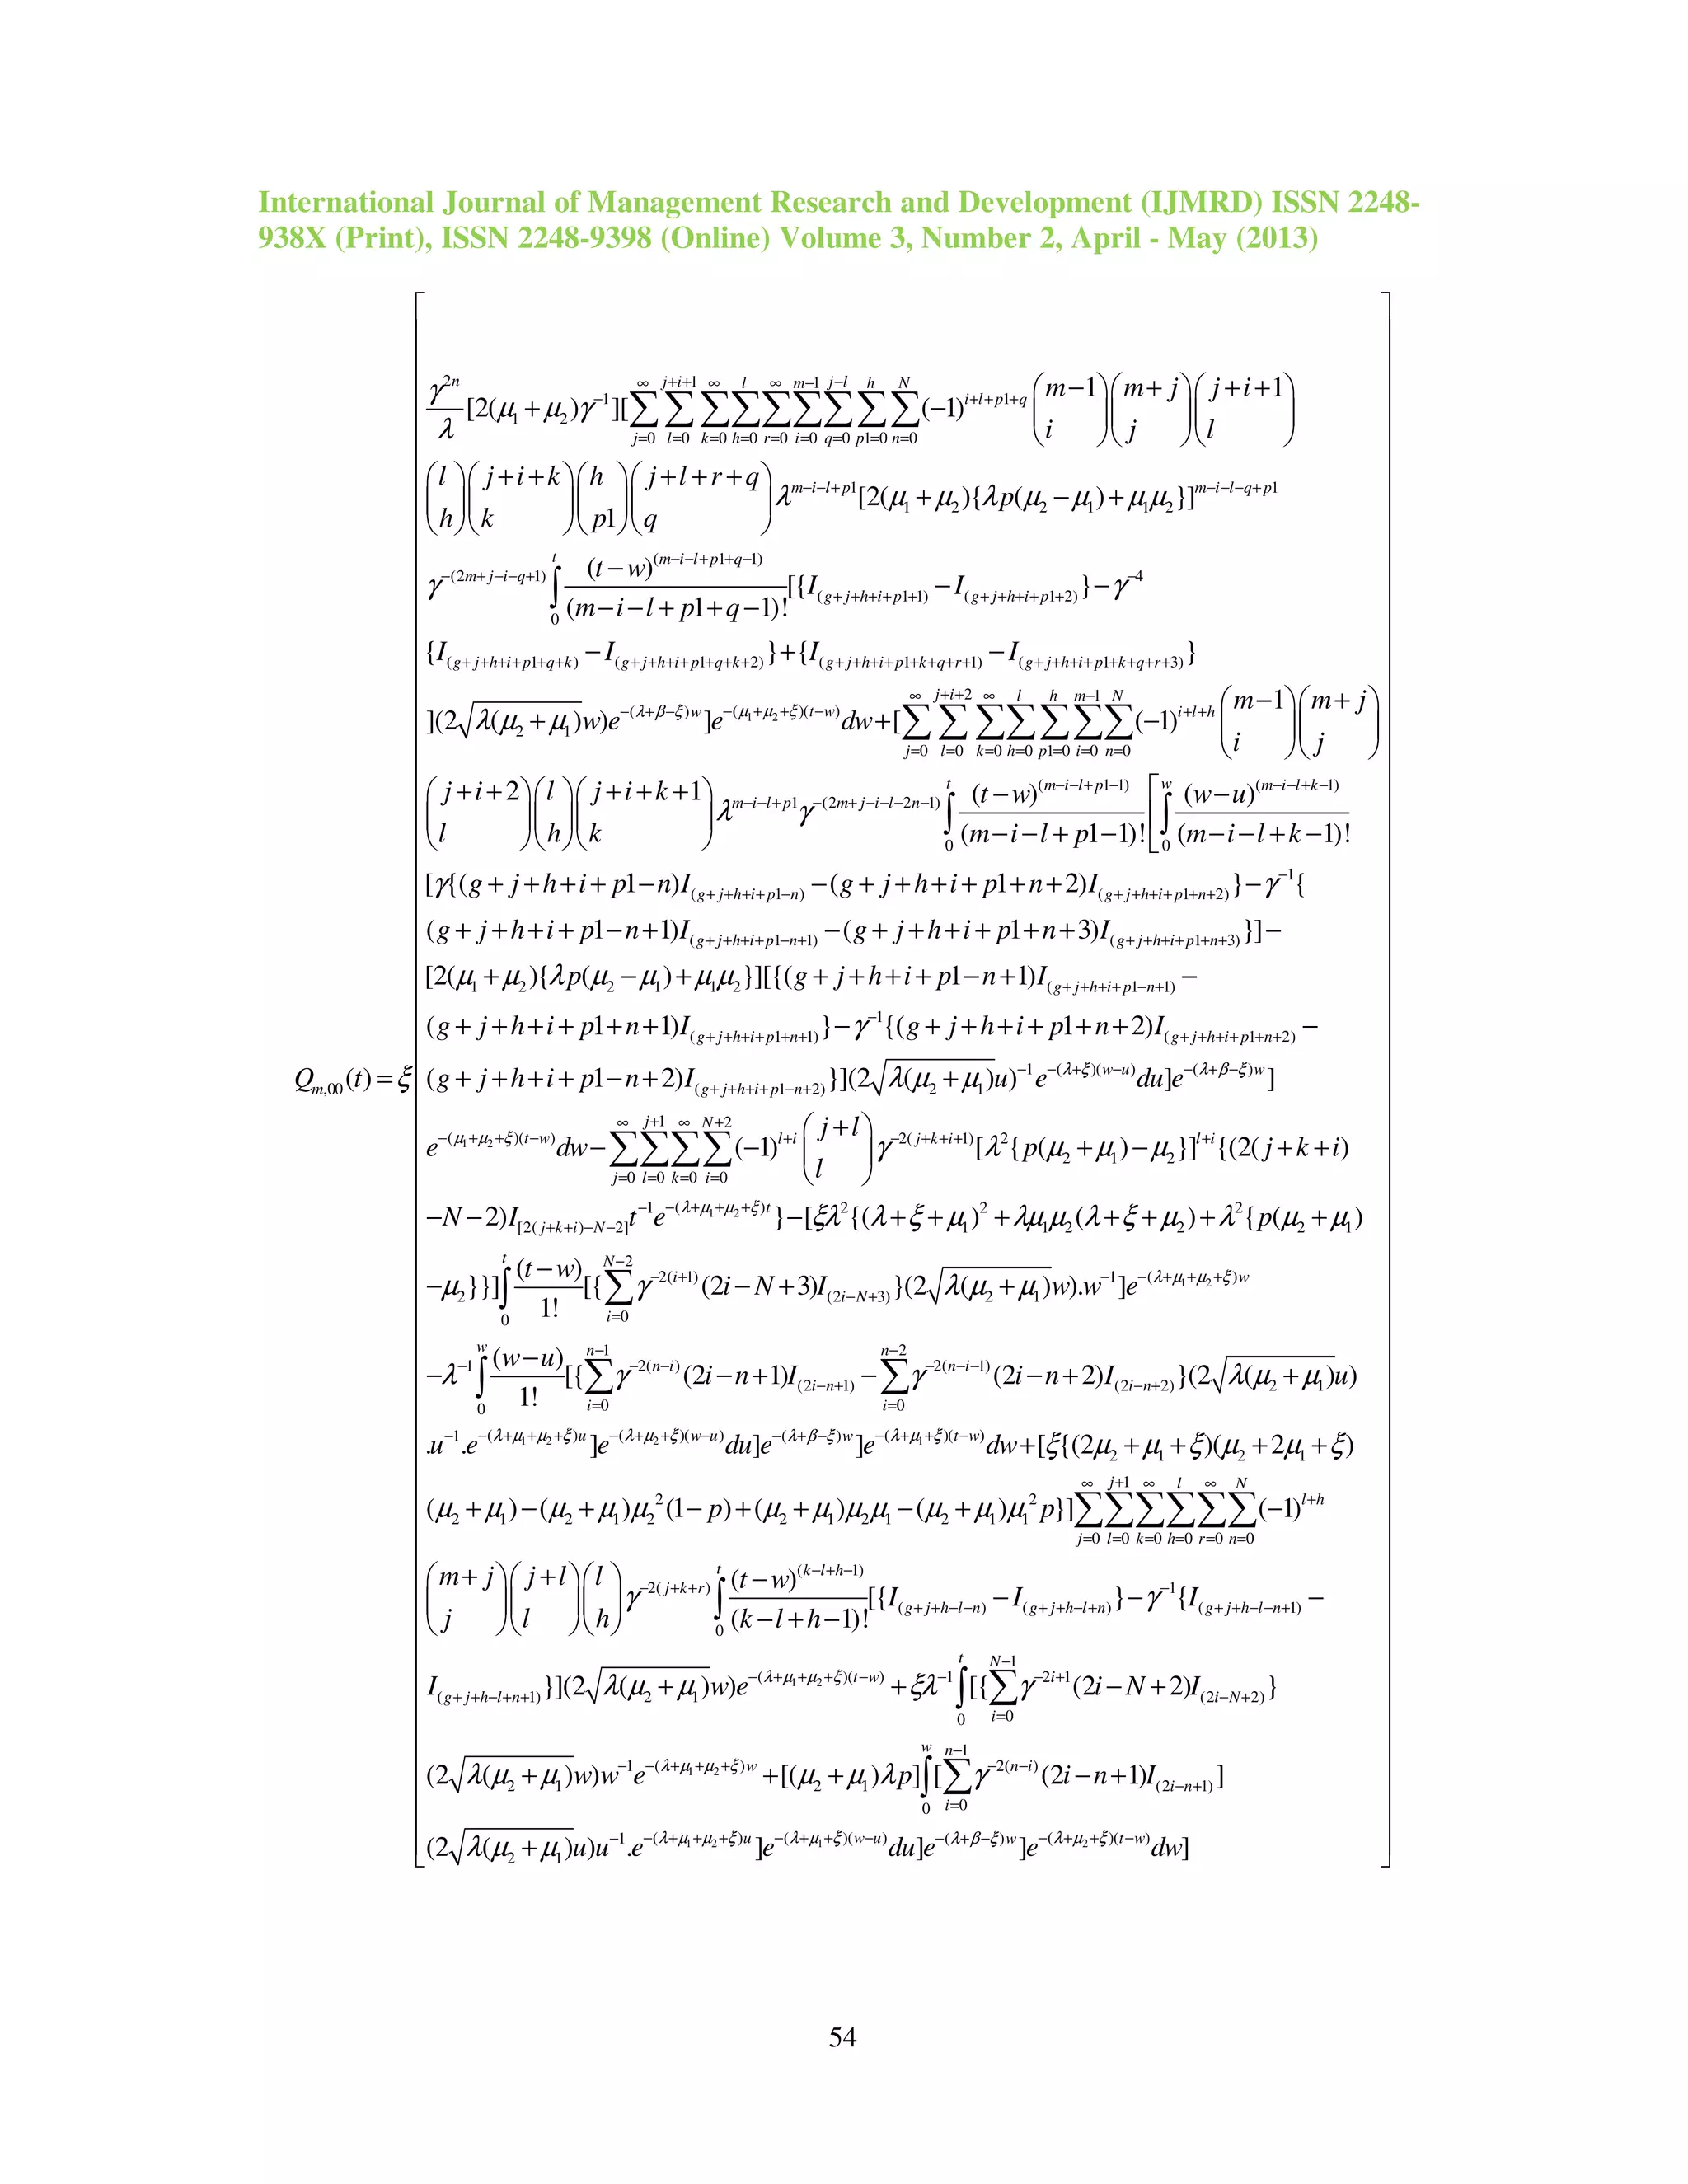 International Journal of Management Research and Development (IJMRD) ISSN 2248-
938X (Print), ISSN 2248-9398 (Online) Volume 3, Number 2, April - May (2013)
\frac{γ^{2n}}{λ}[2(μ_1+μ_2)γ^{-1}][\sum_{j=0}^{∞}\sum_{l=0}^{j+i+1}\sum_{k=0}^{∞}\sum_{h=0}^{l}\sum_{r=0}^{∞}\sum_{i=0}^{m-1}\sum_{q=0}^{j-l}\sum_{p1=0}^{h}\sum_{n=0}^{N}(-1)^{i+l+p1+q}\binom{m-1}{i}\binom{m+j}{j}\binom{j+i+1}{l}
\binom{l}{h}\binom{j+i+k}{k}\binom{h}{p1}\binom{j+l+r+q}{q}λ^{m-i-l+p1}[2(μ_1+μ_2){λp(μ_2-μ_1)+μ_1μ_2}]^{m-i-l-q+p1}
γ^{-(2m+j-i-q+1)}\int_0^t\frac{(t-w)^{(m-i-l+p1+q-1)}}{(m-i-l+p1+q-1)!}[{I_{(g+j+h+i+p1+1)}-I_{(g+j+h+i+p1+2)}}-γ^{-4}
{I_{(g+j+h+i+p1+q+k)}-I_{(g+j+h+i+p1+q+k+2)}}+{I_{(g+j+h+i+p1+k+q+r+1)}-I_{(g+j+h+i+p1+k+q+r+3)}}
](2\sqrt{λ(μ_2+μ_1)}w)e^{-(λ+β-ξ)w}]e^{-(μ_1+μ_2+ξ)(t-w)}dw+[\sum_{j=0}^{∞}\sum_{l=0}^{j+i+2}\sum_{k=0}^{∞}\sum_{h=0}^{l}\sum_{p1=0}^{h}\sum_{i=0}^{m-1}\sum_{n=0}^{N}(-1)^{i+l+h}\binom{m-1}{i}\binom{m+j}{j}
\binom{j+i+2}{l}\binom{l}{h}\binom{j+i+k+1}{k}λ^{m-i-l+p1}γ^{-(2m+j-i-l-2n-1)}\int_0^t\frac{(t-w)^{(m-i-l+p1-1)}}{(m-i-l+p1-1)!}[\int_0^w\frac{(w-u)^{(m-i-l+k-1)}}{(m-i-l+k-1)!}
[γ{(g+j+h+i+p1-n)I_{(g+j+h+i+p1-n)}-(g+j+h+i+p1+n+2)I_{(g+j+h+i+p1+n+2)}}-γ^{-1}{
(g+j+h+i+p1-n+1)I_{(g+j+h+i+p1-n+1)}-(g+j+h+i+p1+n+3)I_{(g+j+h+i+p1+n+3)}}]-
[2(μ_1+μ_2){λp(μ_2-μ_1)+μ_1μ_2}][{(g+j+h+i+p1-n+1)I_{(g+j+h+i+p1-n+1)}-
(g+j+h+i+p1+n+1)I_{(g+j+h+i+p1+n+1)}}-γ^{-1}{(g+j+h+i+p1+n+2)I_{(g+j+h+i+p1+n+2)}-
Q_{m,00}(t)=ξ (g+j+h+i+p1-n+2)I_{(g+j+h+i+p1-n+2)}}](2\sqrt{λ(μ_2+μ_1)}u)^{-1}e^{-(λ+ξ)(w-u)}du]e^{-(λ+β-ξ)w}]
e^{-(μ_1+μ_2+ξ)(t-w)}dw-\sum_{j=0}^{∞}\sum_{l=0}^{j+1}\sum_{k=0}^{∞}\sum_{i=0}^{N+2}(-1)^{l+i}\binom{j+l}{l}γ^{-2(j+k+i+1)}[λ^2{p(μ_2+μ_1)-μ_2}]^{l+i}{(2(j+k+i)
-N-2)I_{[2(j+k+i)-N-2]}t^{-1}e^{-(λ+μ_1+μ_2+ξ)t}}-[ξλ^2{(λ+ξ+μ_1)^2+λμ_1μ_2(λ+ξ+μ_2)+λ^2{p(μ_2+μ_1)
-μ_2}}]\int_0^t\frac{(t-w)}{1!}[{\sum_{i=0}^{N-2}γ^{-2(i+1)}(2i-N+3)I_{(2i-N+3)}}(2\sqrt{λ(μ_2+μ_1)}w).w^{-1}]e^{-(λ+μ_1+μ_2+ξ)w}
-λ^{-1}\int_0^w\frac{(w-u)}{1!}[{\sum_{i=0}^{n-1}γ^{-2(n-i)}(2i-n+1)I_{(2i-n+1)}-\sum_{i=0}^{n-2}γ^{-2(n-i-1)}(2i-n+2)I_{(2i-n+2)}}(2\sqrt{λ(μ_2+μ_1)}u)
.u^{-1}.e^{-(λ+μ_1+μ_2+ξ)u}]e^{-(λ+μ_2+ξ)(w-u)}du]e^{-(λ+β-ξ)w}]e^{-(λ+μ_1+ξ)(t-w)}dw+[ξ{(2μ_2+μ_1+ξ)(μ_2+2μ_1+ξ)
(μ_2+μ_1)-(μ_2+μ_1)μ_2^2(1-p)+(μ_2+μ_1)μ_2μ_1-(μ_2+μ_1)μ_1^2p}]\sum_{j=0}^{∞}\sum_{l=0}^{j+1}\sum_{k=0}^{∞}\sum_{h=0}^{l}\sum_{r=0}^{∞}\sum_{n=0}^{N}(-1)^{l+h}
\binom{m+j}{j}\binom{j+l}{l}\binom{l}{h}γ^{-2(j+k+r)}\int_0^t\frac{(t-w)^{(k-l+h-1)}}{(k-l+h-1)!}[{I_{(g+j+h-l-n)}-I_{(g+j+h-l+n)}}-γ^{-1}{I_{(g+j+h-l-n+1)}-
I_{(g+j+h-l+n+1)}}](2\sqrt{λ(μ_2+μ_1)}w)e^{-(λ+μ_1+μ_2+ξ)(t-w)}+ξλ^{-1}\int_0^t[{\sum_{i=0}^{N-1}γ^{-2i+1}(2i-N+2)I_{(2i-N+2)}}
(2\sqrt{λ(μ_2+μ_1)}w)w^{-1}e^{-(λ+μ_1+μ_2+ξ)w}+[(μ_2+μ_1)λp]\int_0^w[\sum_{i=0}^{n-1}γ^{-2(n-i)}(2i-n+1)I_{(2i-n+1)}]
(2\sqrt{λ(μ_2+μ_1)}u)u^{-1}.e^{-(λ+μ_1+μ_2+ξ)u}]e^{-(λ+μ_1+ξ)(w-u)}du]e^{-(λ+β-ξ)w}]e^{-(λ+μ_2+ξ)(t-w)}dw]
54